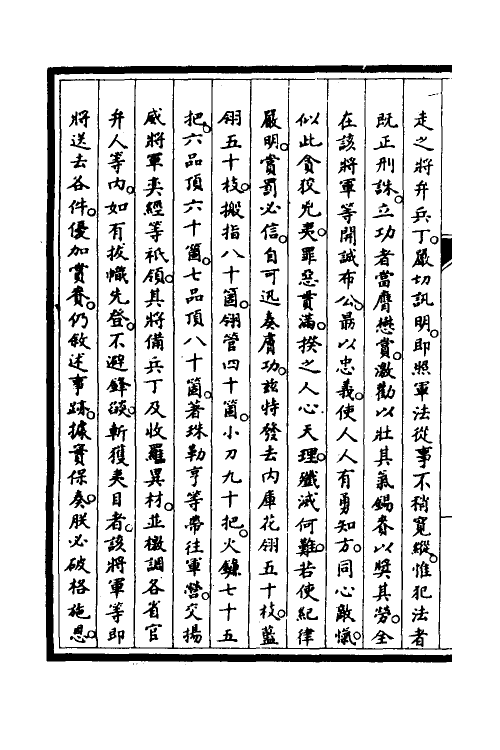 走之將弁兵丁嚴切訊明即照軍法從事不稍寬縱惟犯法者
既正刑誅立功者當膺懋賞激勸以壯其氣錫賚以獎其勞全
在該將軍等開誠布公勗以忠義使人人有勇知方同心敵愾
似此貪狡兇夷罪惡貫滿揆之人心天理殲滅何難若使紀律
嚴明賞罰必信自可迅奏膚功玆特發去內庫花翎五十枝藍
翎五十枝搬指八十箇翎管四十箇小刀九十把火鐮七十五
把六品頂六十箇七品頂八十箇著珠勒亨等帶往軍營交揚
威將軍奕經等祇領其將備兵丁及收羅異材並檄調各省官
弁人等內如有拔幟先登不避鋒燄斬獲夷目者該將軍等即
將送去各件優加賞賚仍敘述事跡據實保奏朕必破格施恩